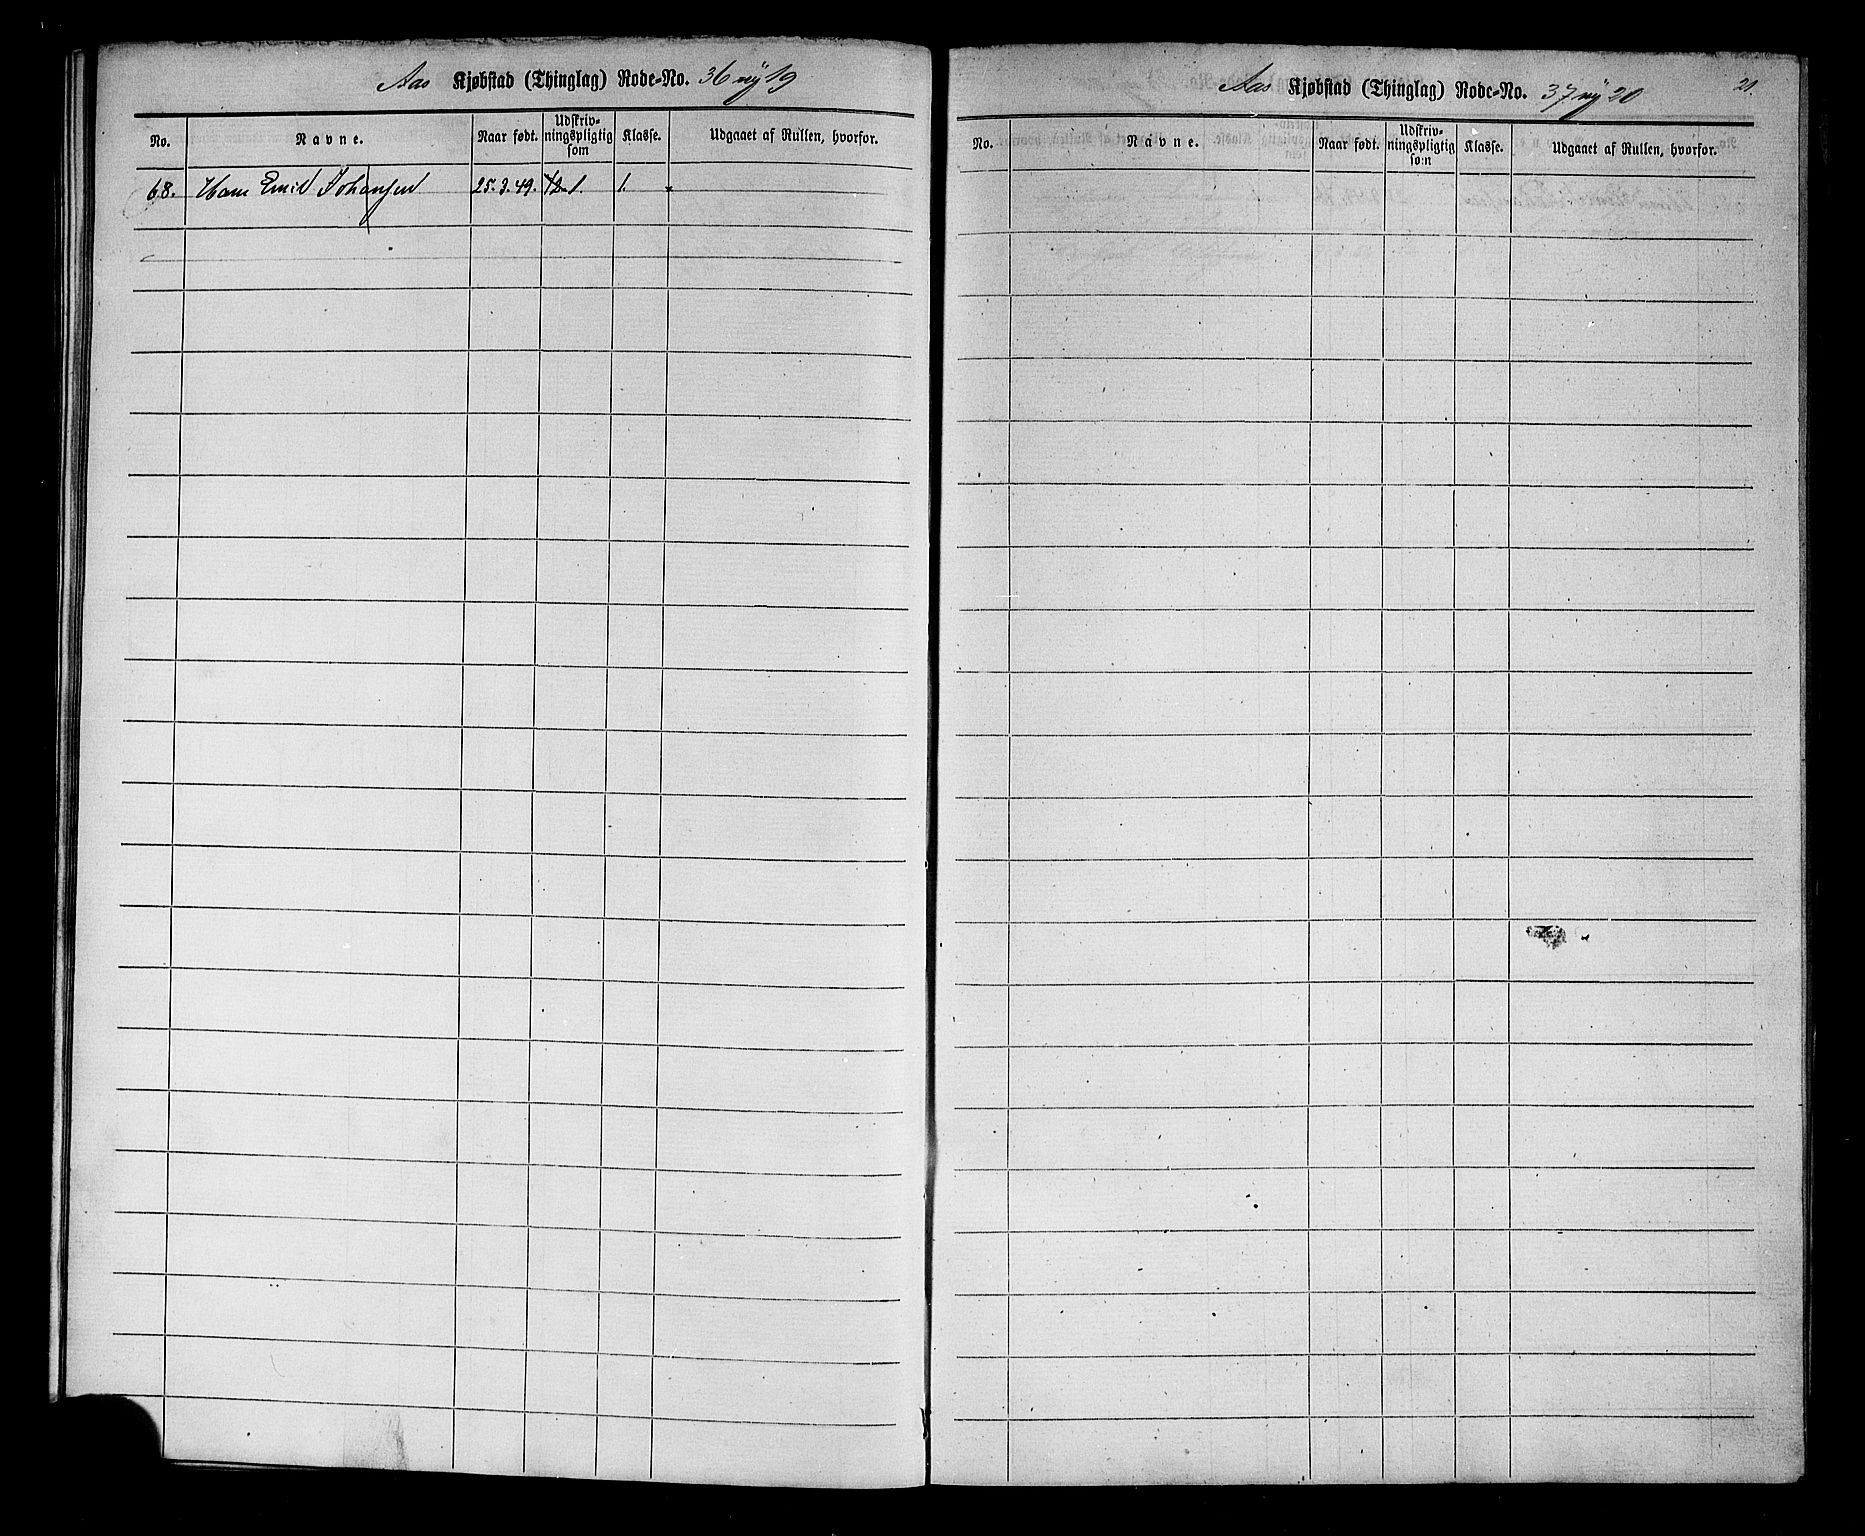 Aas Kjøbstad (Thinglag) Rode-No. 36 ny 19
No. Navne. Naar født. Udskriv-ningspligtig som Klasse. Udgaaet af Rullen, hvorfor.
68. Hans Emil Johansen 25.3.49. 1. 1.
21.
Aas Kjøbstad (Thinglag) Rode-No. 37 ny 20
No. Navne. Naar født. Udskriv-ningspligtig som Klasse. Udgaaet af Rullen, hvorfor.